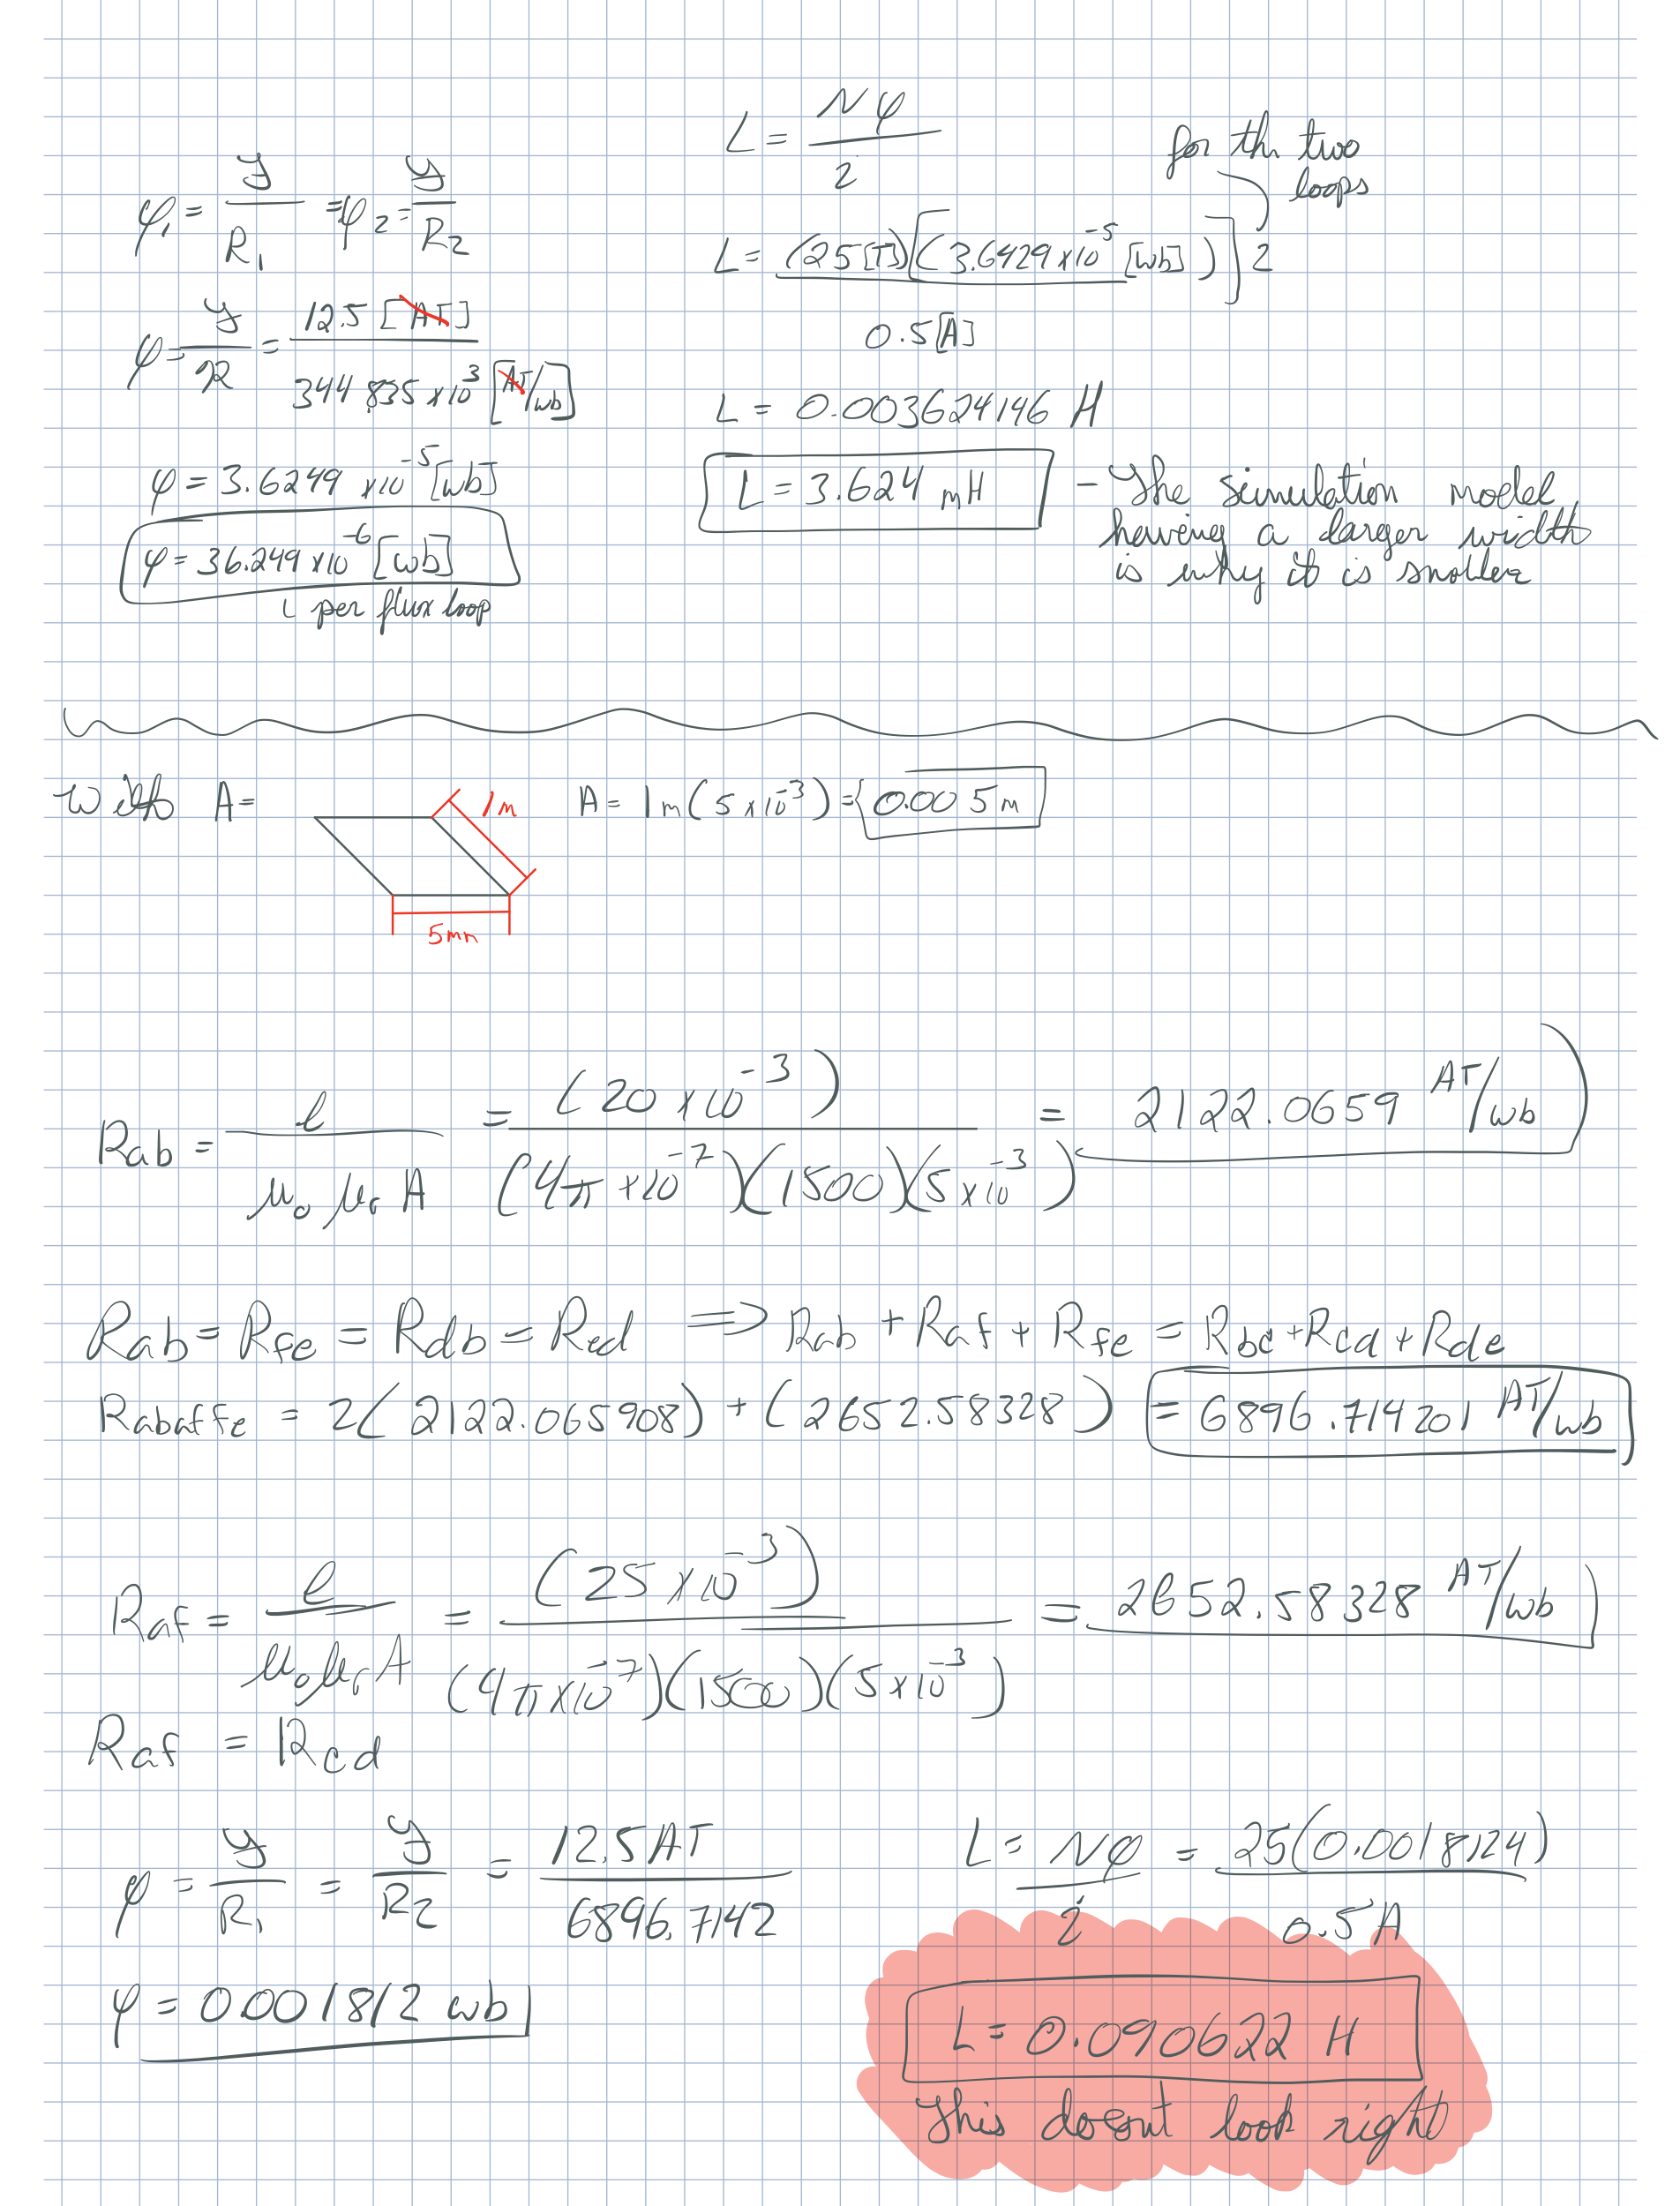 φ₁ = 𝓕/R₁ = φ₂ = 𝓕/R₂
φ = 𝓕/R = 12.5 [AT] / 344.835 x10³ [AT/wb]
φ = 3.6249 x10⁻⁵ [wb]
φ = 36.249 x10⁻⁶ [wb]
per flux loop
L = Nφ/i
for th two
loops
L = (25[T])[(3.6429x10⁻⁵ [wb])]2 / 0.5[A]
L = 0.003624146 H
L = 3.624 mH
- The simulation model
having a larger width
is why it is smaller
With A=
1m
5mm
A = 1m(5x10⁻³) = 0.005m
Rab = l / μ₀μᵣA = (20x10⁻³) / (4πx10⁻⁷)(1500)(5x10⁻³) = 2122.0659 AT/wb
Rab = Rfe = Rdb = Red ⇒ Rab + Raf + Rfe = Rbc + Rcd + Rde
Rabaffe = 2(2122.065908) + (2652.58328) = 6896.714201 AT/wb
Raf = l / μ₀μᵣA = (25x10⁻³) / (4πx10⁻⁷)(1500)(5x10⁻³) = 2652.58328 AT/wb
Raf = Rcd
φ = 𝓕/R₁ = 𝓕/R₂ = 12.5AT / 6896.7142
φ = 0.001812 wb
L = Nφ/i = 25(0.0018124) / 0.5A
L = 0.090622 H
This doesnt look right